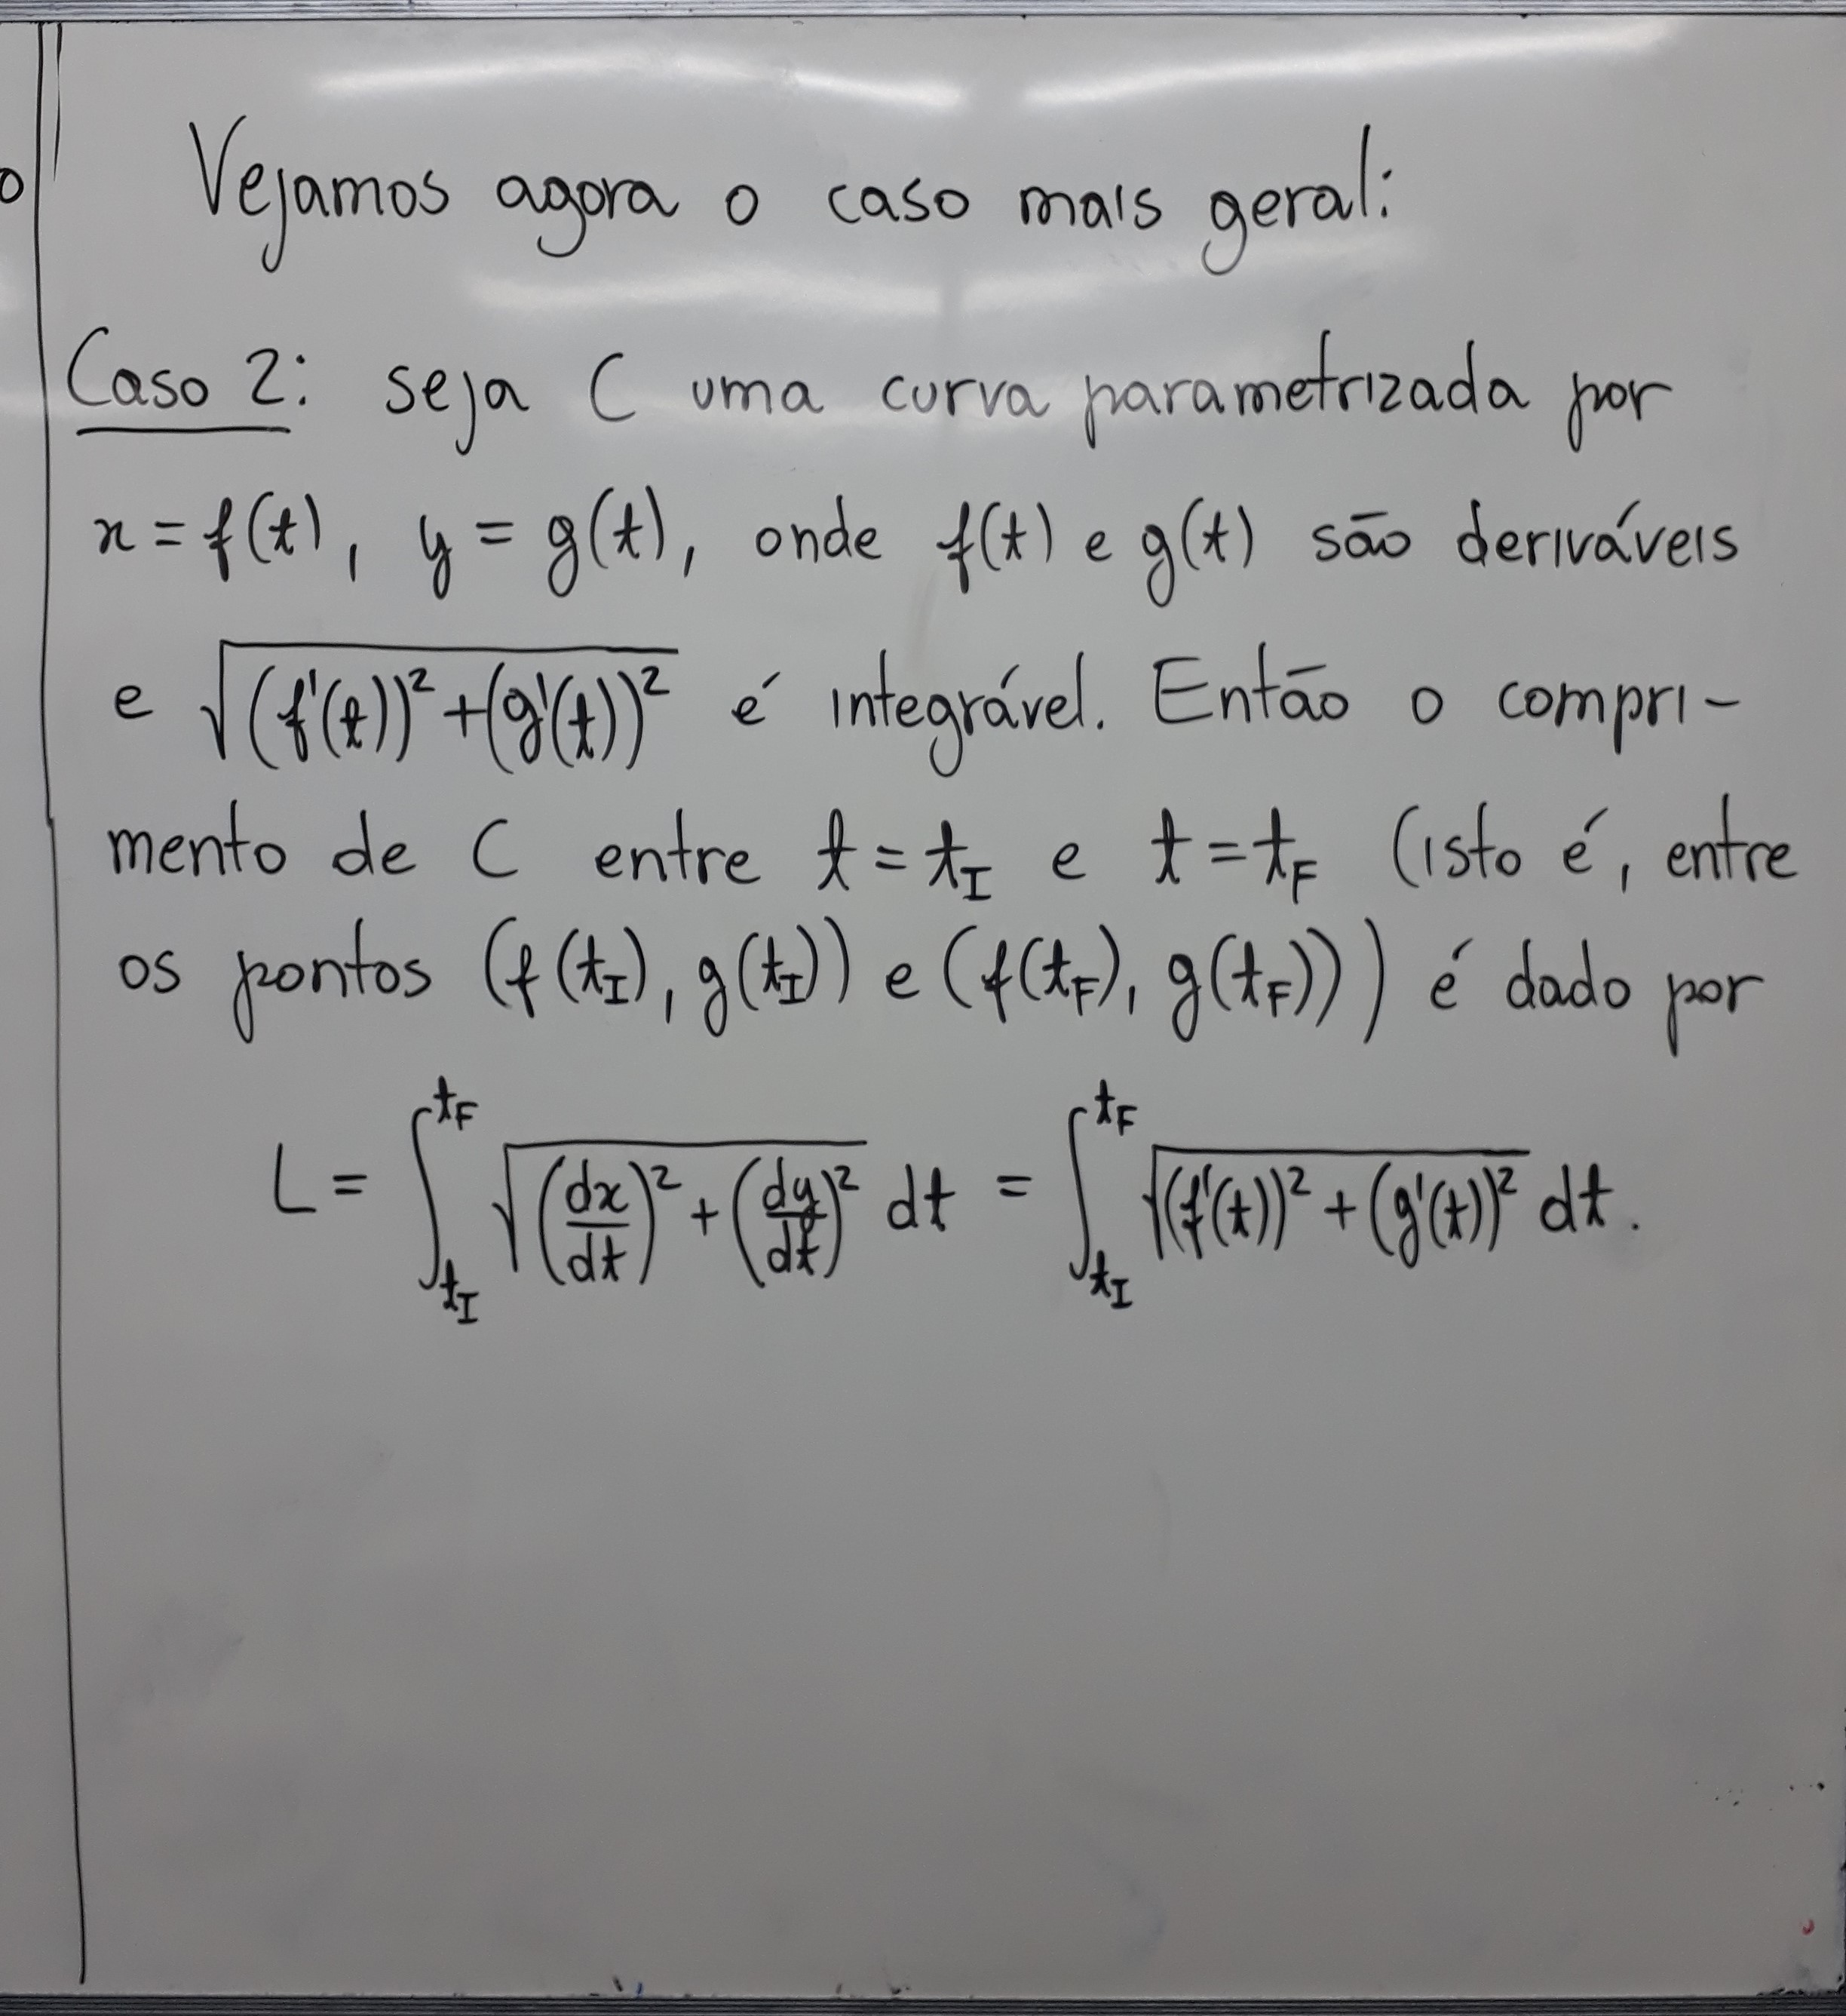 Vejamos agora o caso mais geral:
Caso 2: seja C uma curva parametrizada por
x = f(t), y = g(t), onde f(t) e g(t) são deriváveis
e √((f'(t))² + (g'(t))²) é integrável. Então o compri-
mento de C entre t = t_I e t = t_F (isto é, entre
os pontos (f(t_I), g(t_I)) e (f(t_F), g(t_F))) é dado por
L = ∫_{t_I}^{t_F} √((dx/dt)² + (dy/dt)²) dt = ∫_{t_I}^{t_F} √((f'(t))² + (g'(t))²) dt.